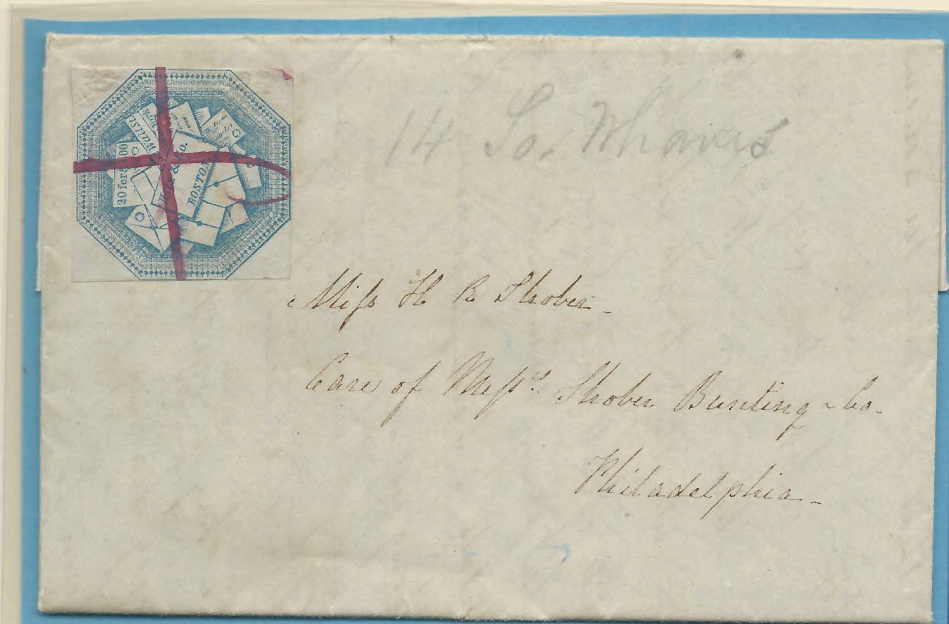 20 for $1.00
Hale & Co.
BOSTON
14 So. Wharves
Miss H R Shober
Care of Messrs. Shober Bunting & Co.
Philadelphia